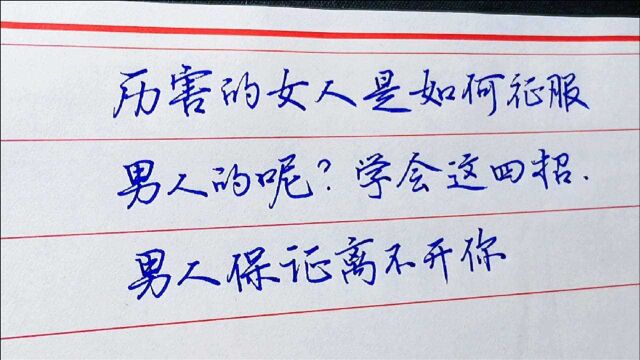 厉害的女人是如何征服
男人的呢?学会这四招.
男人保证离不开你